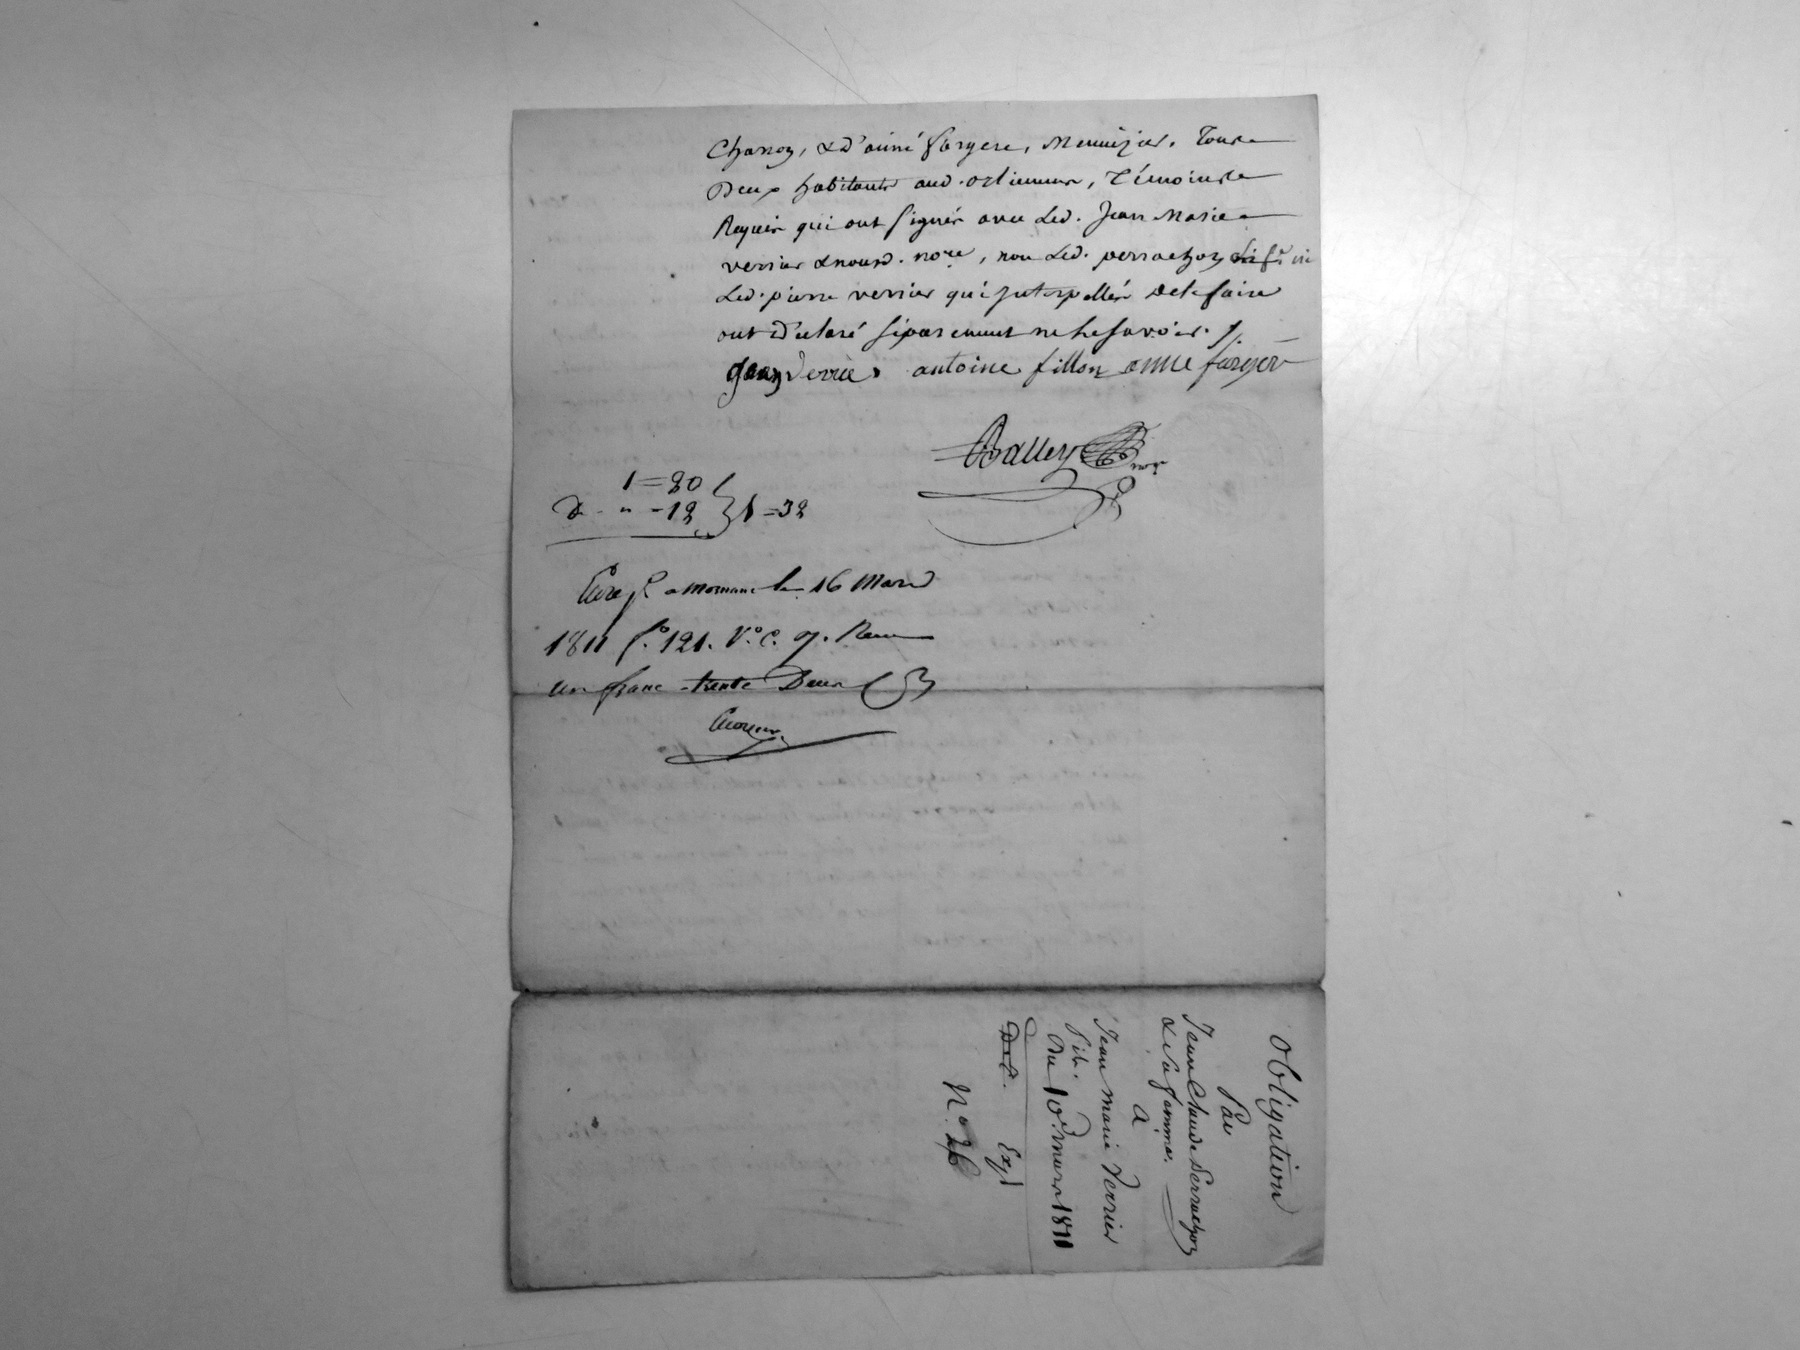 Charroy, & d'aimé fargere, Menuizier. Tous
Deux habitants aud. orlienas, Témoins
Requis qui ont signés avec Led. Jean Marie
verrier & nousd. nore, non Led. perrachon ni
Led. pierre verrier qui jnterpellés de le faire
ont déclaré séparement ne le savoir. /.
jean Verrier antoine fillon aime fargere
Balley nore
1=20
D. " -12 } 1=32
Enregé a Mornant le 16 Mars
1811 fo. 121. Vo. C. 7. Reçu
un franc trente Deux c
Obligation
Par
Jean Claude Perrachon
& sa femme.
A
Jean Marie Verrier
Du 10 mars 1811
Exp
No. 26